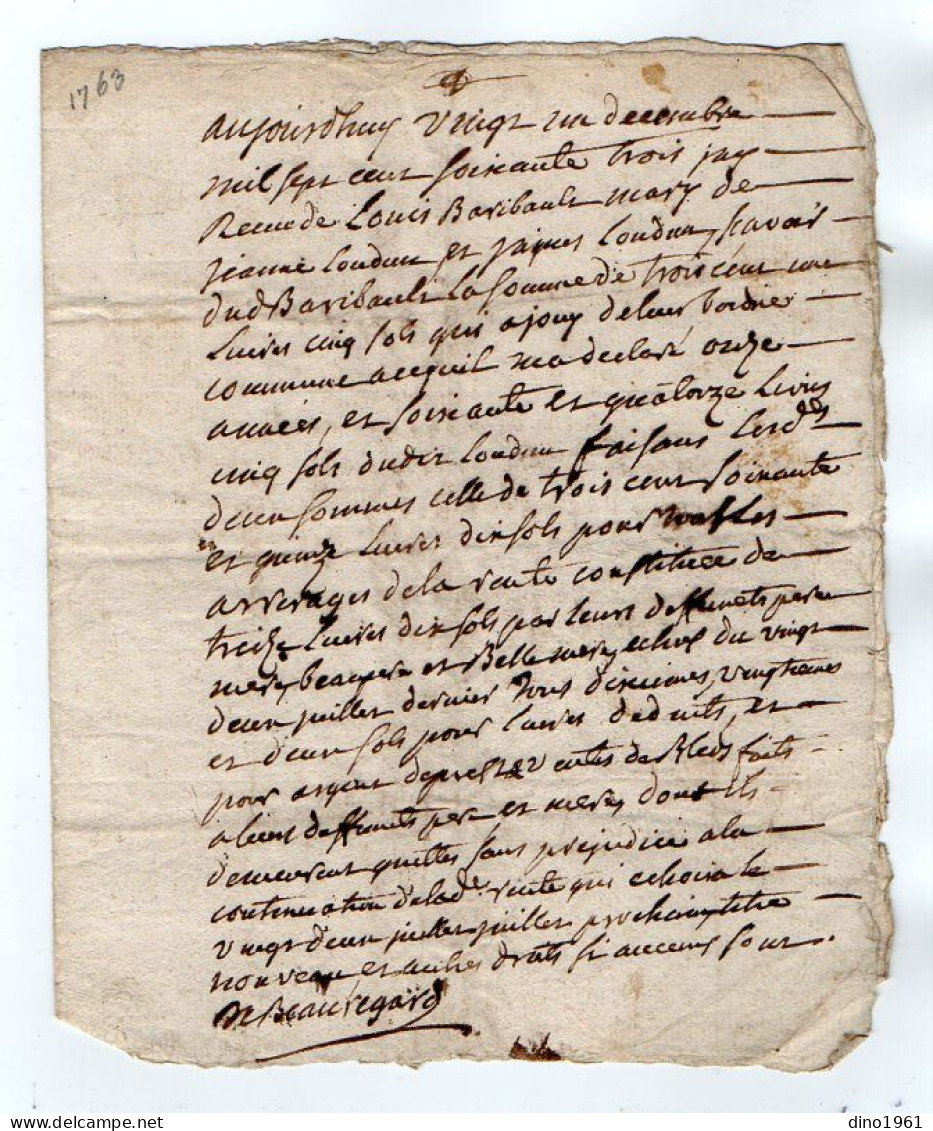 1763
aujourdhuy vingt un decembre
mil sept cent soixante trois jay
Receu de Louis Baribault mary de
jeanne Loudun et jaques Loudun, scavoir
dud Baribault La somme de trois cent une
Livres cinq sols qui a jouy de leur borderie
commune acequil ma declaré onze
années, et soixante et quatorze Livres
cinq sols dudit Loudun faisans Lesd.
deux sommes celle de trois cent soixante
et quinze Livres dix sols pour les
arrerages de la rente constituée de
treize Livres dix sols par leurs deffunets pere
mere, beaupere et Belle mere, echus du vingt
deux juillet dernier tous dixiemes, vingtiemes
et deux sols pour Livres deduits, et
pour argent depresté ventes de Bleds faits
a leurs deffunets pere et mere, dont ils
demeurent quittes sans prejudice a la
continuation de lad. rente qui echoira le
vingt deux juillet prochain, titre
nouveau et autres droits si aucuns sont.
De Beauregard
dino1961